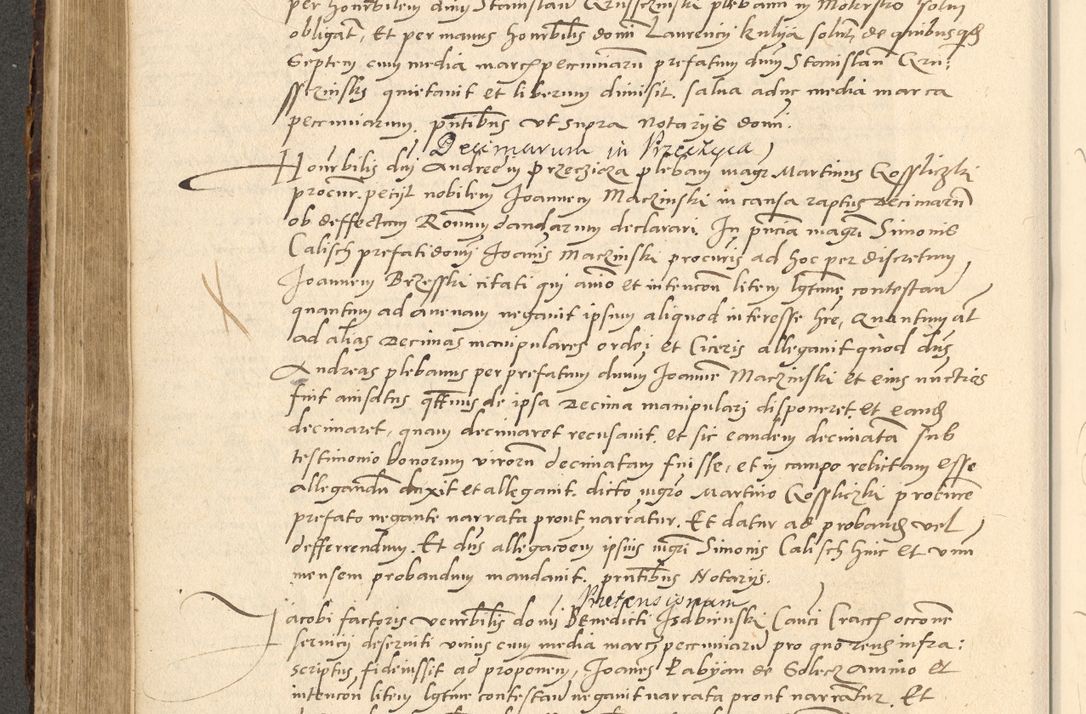 per honrbilem dnm Stanislau Grusseżinski plebanu in Mokrsko solui
obligat, Et per manus honrbilis domi Laurencij Kulija solut, de quibus qd
Septem cum media march pecuniaru prefatum dnm Stanislau Gru-
sczinski quietauit et liberum dimisit. salua adhc media marca
pecuniarum. pntibus vt supra Notarijs domi.
Decimarum in Przeczyca
Honrbilis dni Andree in Przeczicza plebani magr Martinus Gossliczki
procur. petijt nobilem Joannem Maczinski in causa raptus Decimaru
ob deffectum Ronum dandarum declarari. In pncia magri Simonis
Calisch prefati domi Joannis Maczinski procuris ad hoc per discretum
Joannem Brzesski citati qui animo et intencon litem lgtime contestan
quantum ad auenam negauit ipsum aliquod interesse hre, Quantum at
ad alias Decimas manipulares ordej et Ciceris allegauit quod dns
Andreas plebanus per prefatum dnum Joanne Maczinski et eius nuctios
fuit auisatus qtenus de ipsa Decima manipulari disponeret et eand
decimaret, quam decimaret recusauit. et sic eandem decimata sub
testimonio bonorum viroru decimatam fuisse, et in campo relictam esse
allegandu duxit et allegauit. dicto mgro Martino Gossliczki procure
prefato negante narrata prout narratur. Et datur ad proband vel
defferrendum. Et dns allegacoem ipsius mgri Simonis Calisch hinc et vnu
mensem probandum mandauit. pntibus Notarijs.
Pretensionum
Jacobi factoris venrbilis domi Benedicti Isdbienski Canci Cracch occone
seruicij deseruiti vnius cum media marc pecuniaru pro quo reus infra-
scriptus fideiussit ad proponem, Joanes Rabyan de Solecz animo et
intencon litem lgtime contestan negauit narrata prout narratur. Et